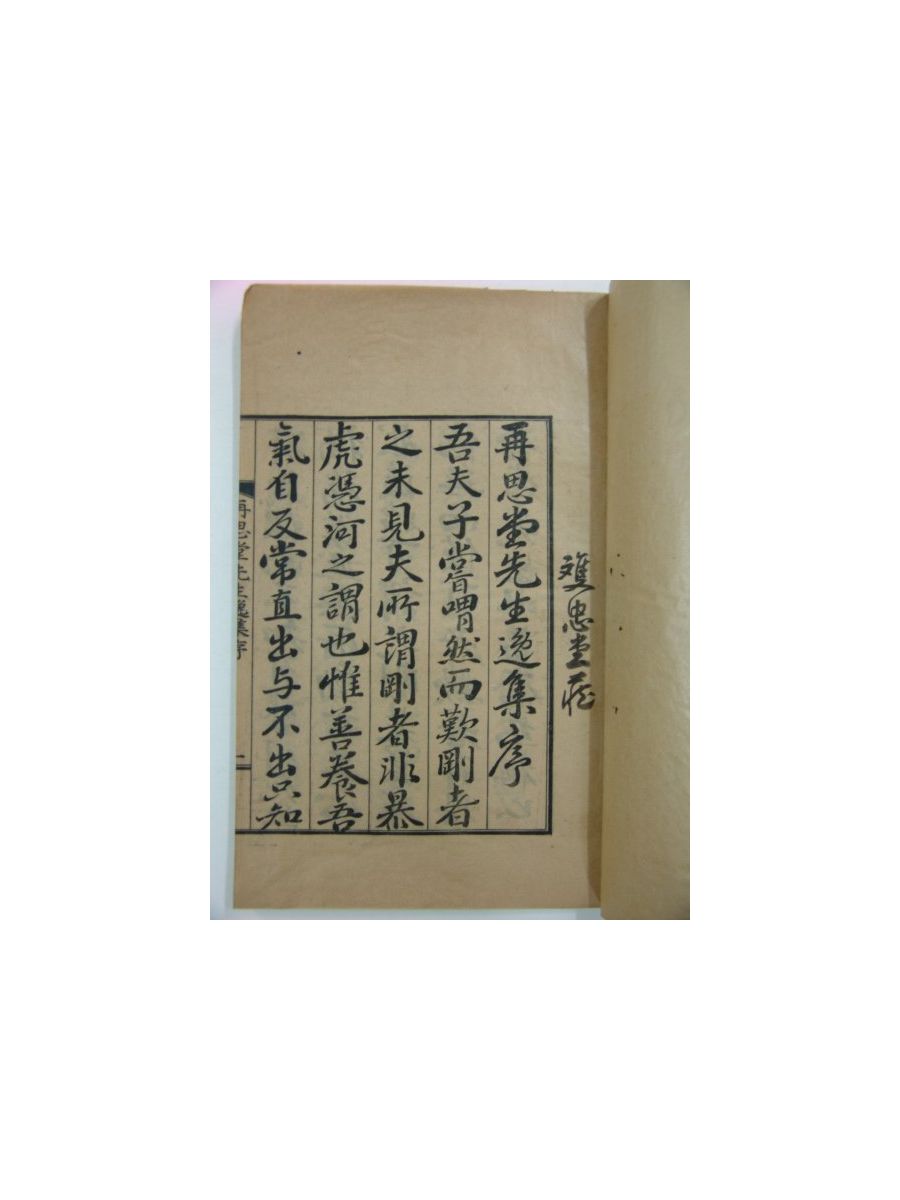 雙忠堂藏
再思堂先生逸集序
吾夫子嘗喟然而歎剛者
之未見夫所謂剛者非暴
虎憑河之謂也惟善養吾
氣自反常直出与不出只知
再思堂先生逸集序
一